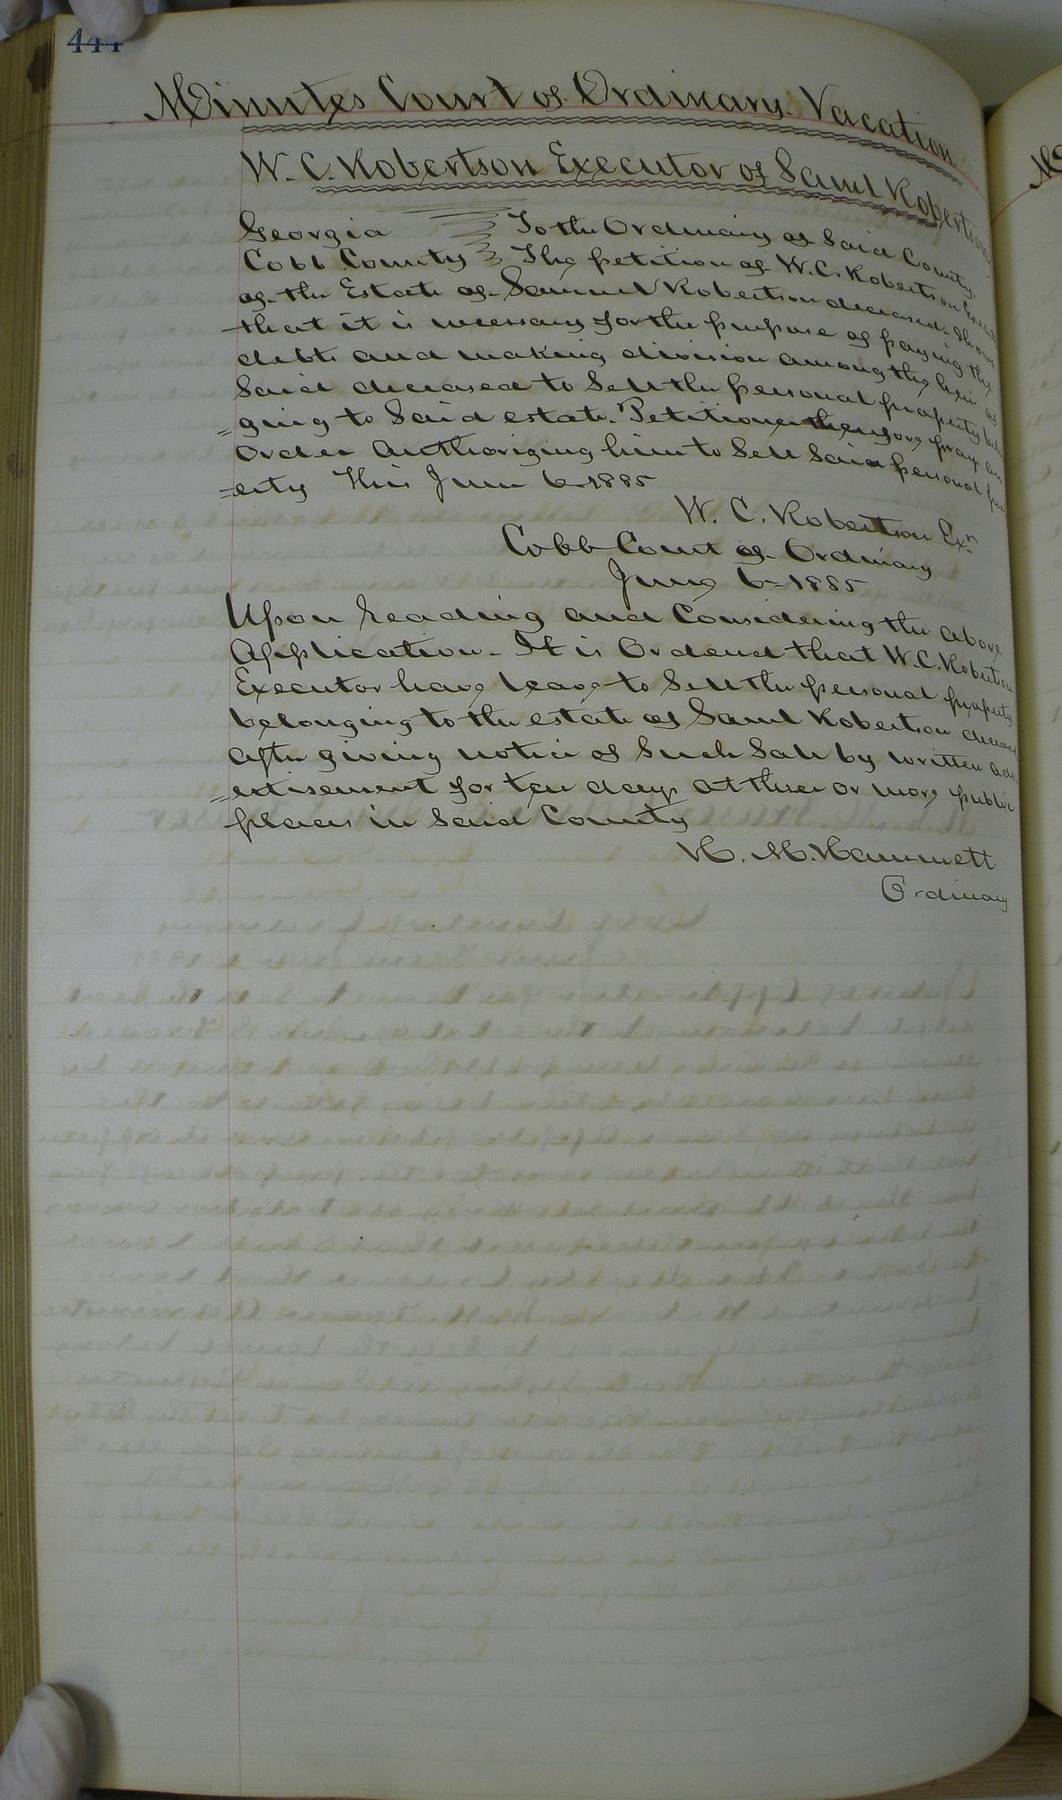 444
Minutes Court of Ordinary. Vacation
W. C. Robertson Executor of Saml Robertson
Georgia To the Ordinary of Said County.
Cobb County The petition of W. C. Robertson
of the Estate of Samuel Robertson deceased Shows
that it is necessary for the purpose of paying the
debts and making division among the heirs of
Said deceased to Sell the personal property
=ging to Said estate. Petitioner therefore pray an
Order Authorizing him to Sell Said personal
=erty This June 6 1885
W. C. Robertson Exr
Cobb Court of Ordinary
June 6 1885
Upon reading and Considering the above
Application - It is Ordered that W. C. Robertson
Executor have leave to Sell the personal property
belonging to the estate of Saml Robertson
After giving notice of Such Sale by written
=ertisement for ten days At three or more public
places in Said County
H. M. Hammett
Ordinary